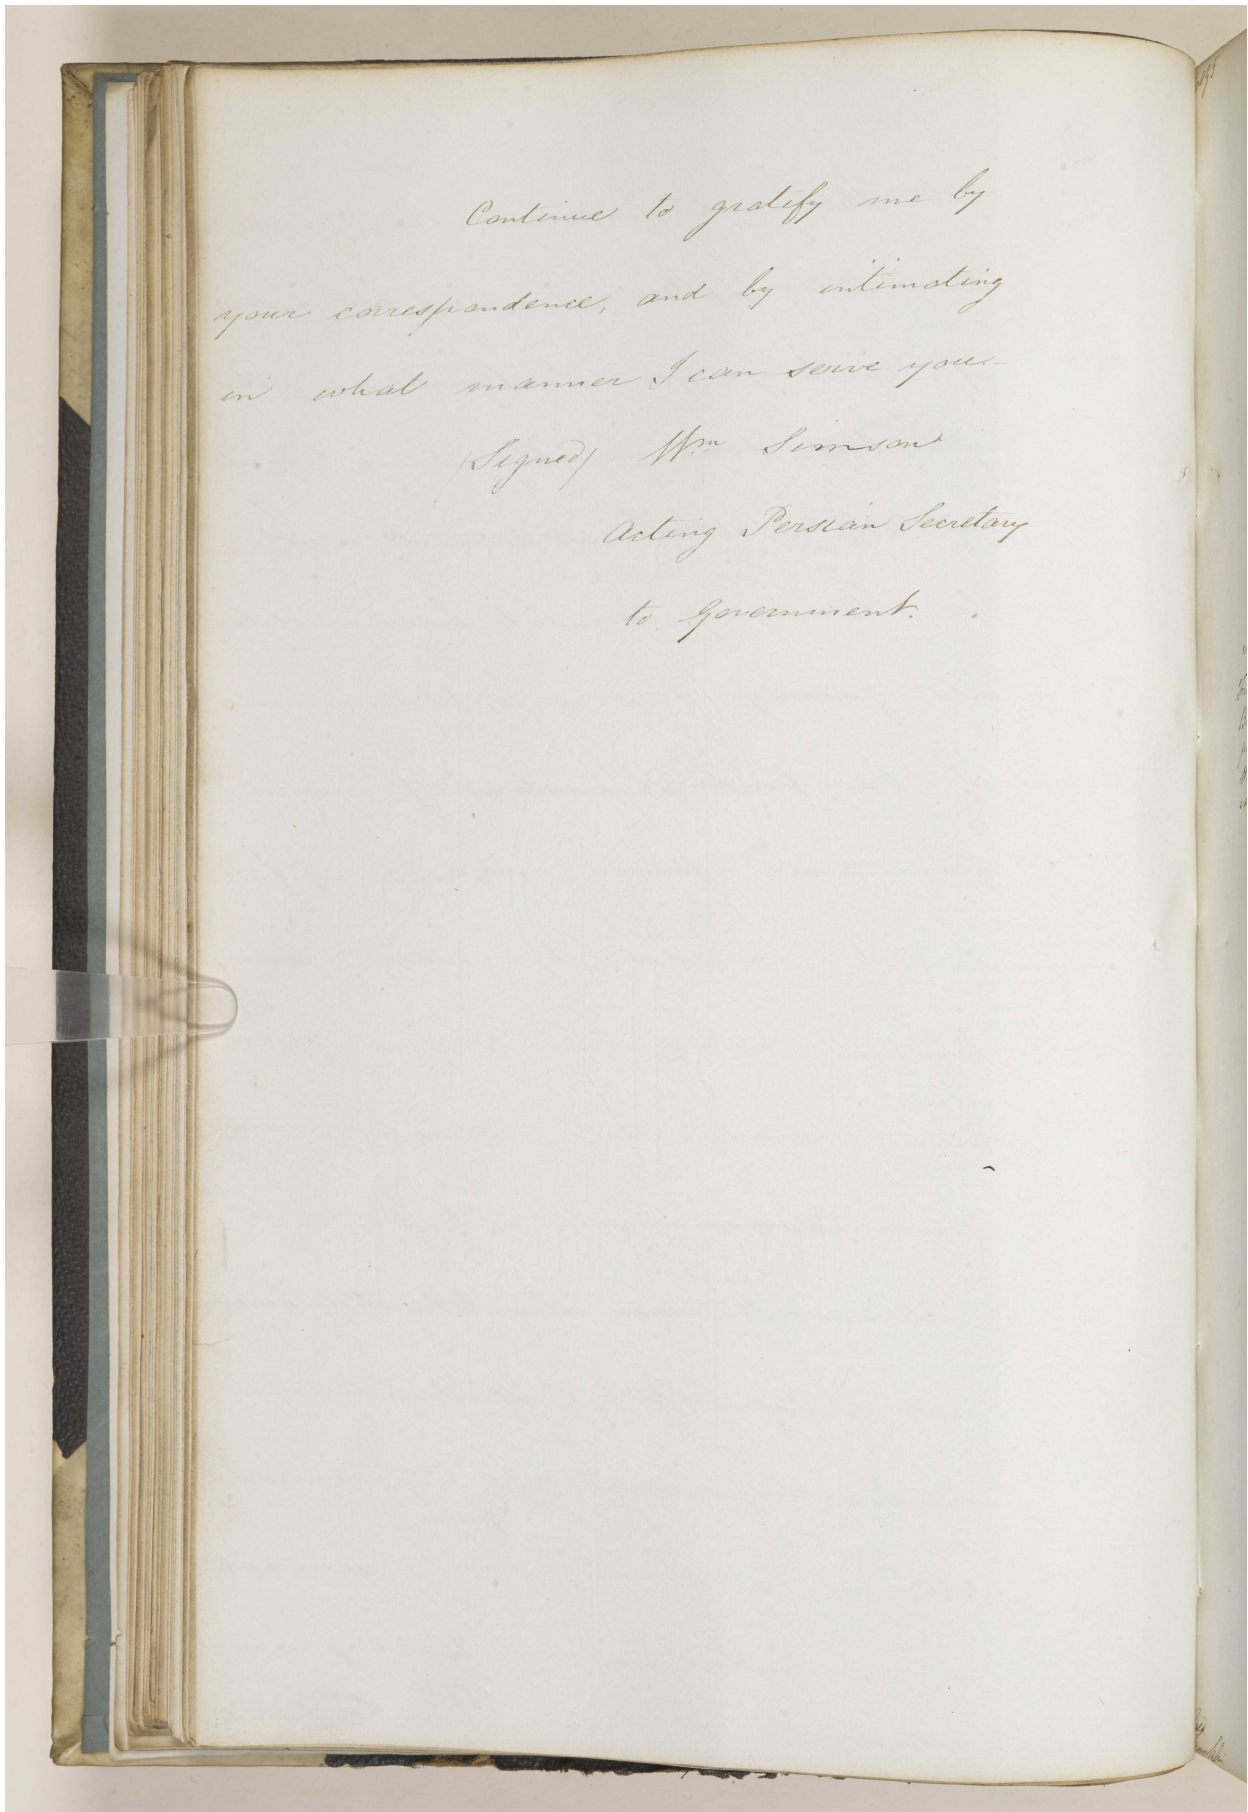 Continue to gratify me by
your correspondence, and by intimating
in what manner I can serve you
(Signed) Wm Simson
Acting Persian Secretary
to Government.